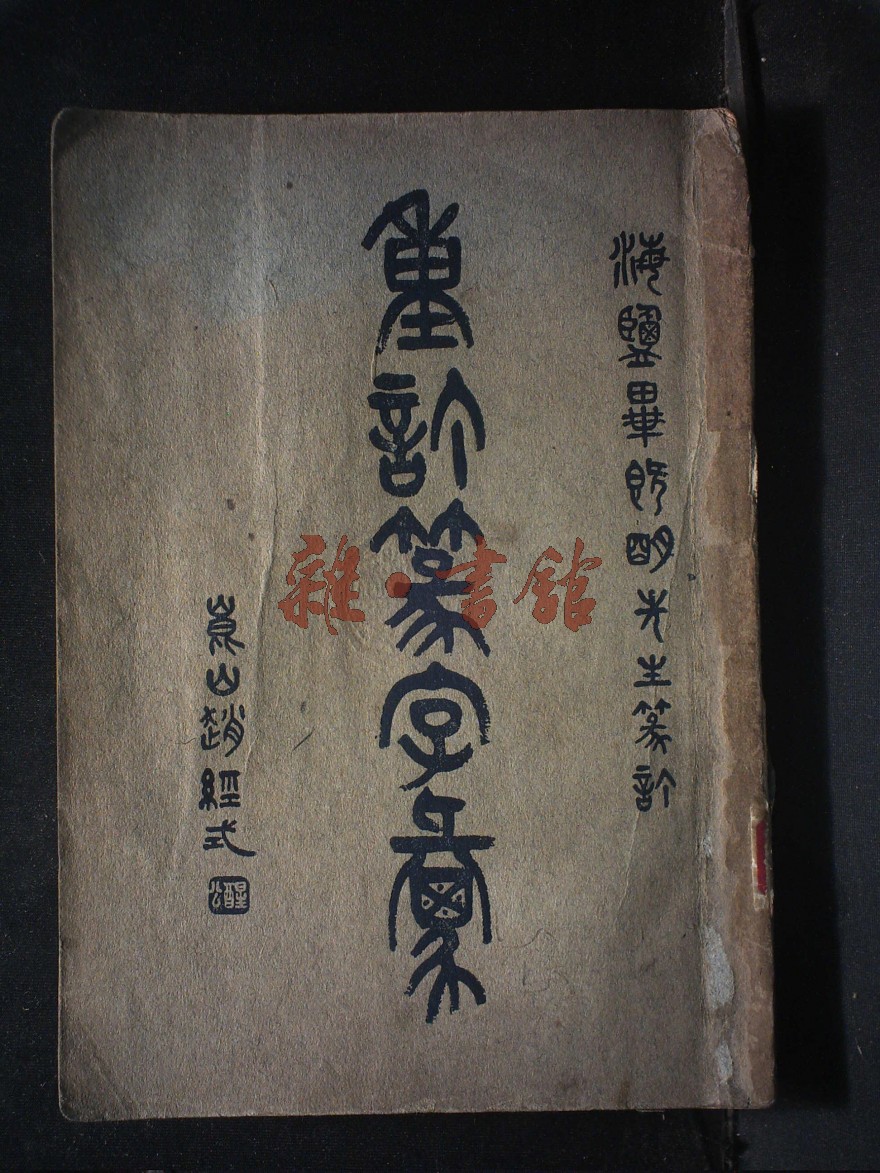 海鹽畢既明先生篆訂
重訂篆字彙
嵩山趙經式
雜·書館